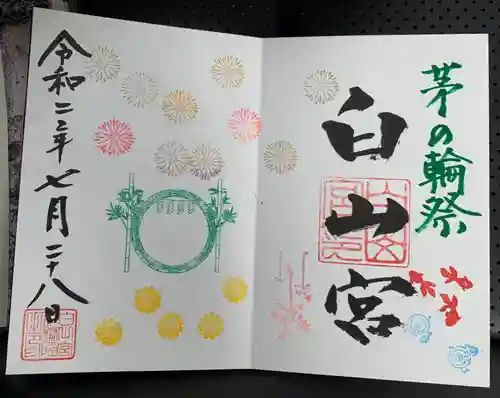 茅の輪祭
白山宮
令和二年七月二十八日